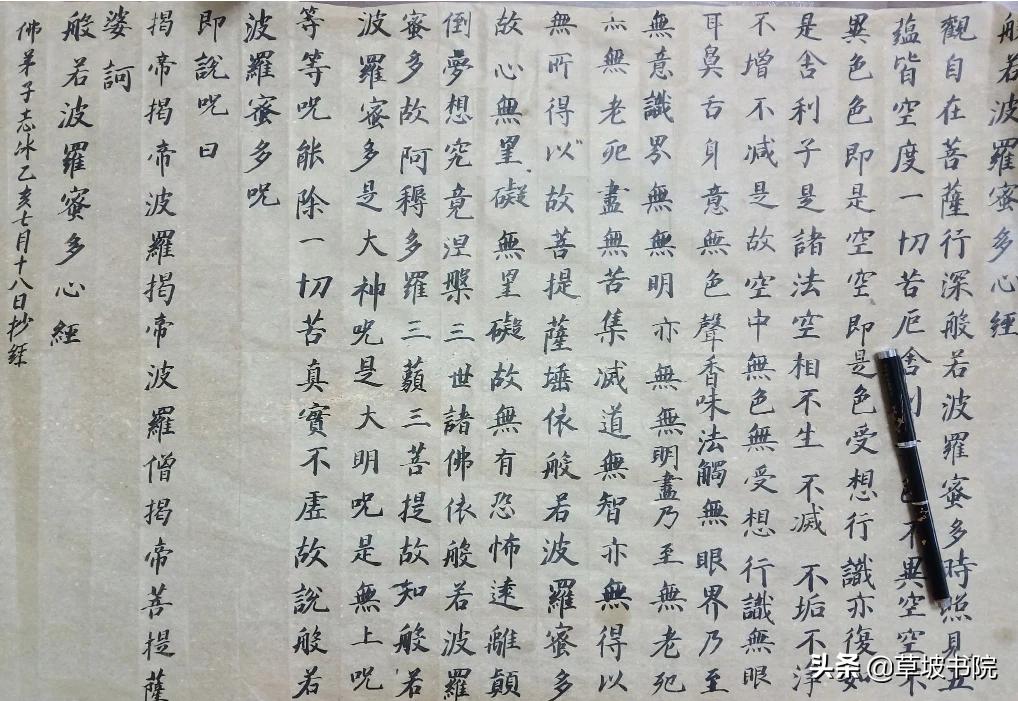 般若波羅蜜多心經
觀自在菩薩行深般若波羅蜜多時照見五
蘊皆空度一切苦厄舍利色不異空空不
異色色即是空空即是色受想行識亦復如
是舍利子是諸法空相不生不滅不垢不淨
不增不減是故空中無色無受想行識無眼
耳鼻舌身意無色聲香味法觸無眼界乃至
無意識界無無明亦無無明盡乃至無老死
亦無老死盡無苦集滅道無智亦無得以
無所得以故菩提薩埵依般若波羅蜜多
故心無罣礙無罣礙故無有恐怖遠離顛
倒夢想究竟涅槃三世諸佛依般若波羅
蜜多故阿耨多羅三藐三菩提故知般若
波羅蜜多是大神呪是大明呪是無上呪
等等呪能除一切苦真實不虛故說般若
波羅蜜多呪
即說呪曰
揭帝揭帝波羅揭帝波羅僧揭帝菩提薩
婆訶
般若波羅蜜多心經
佛弟子志冰乙亥七月十八日抄經
头条 @草坡书院